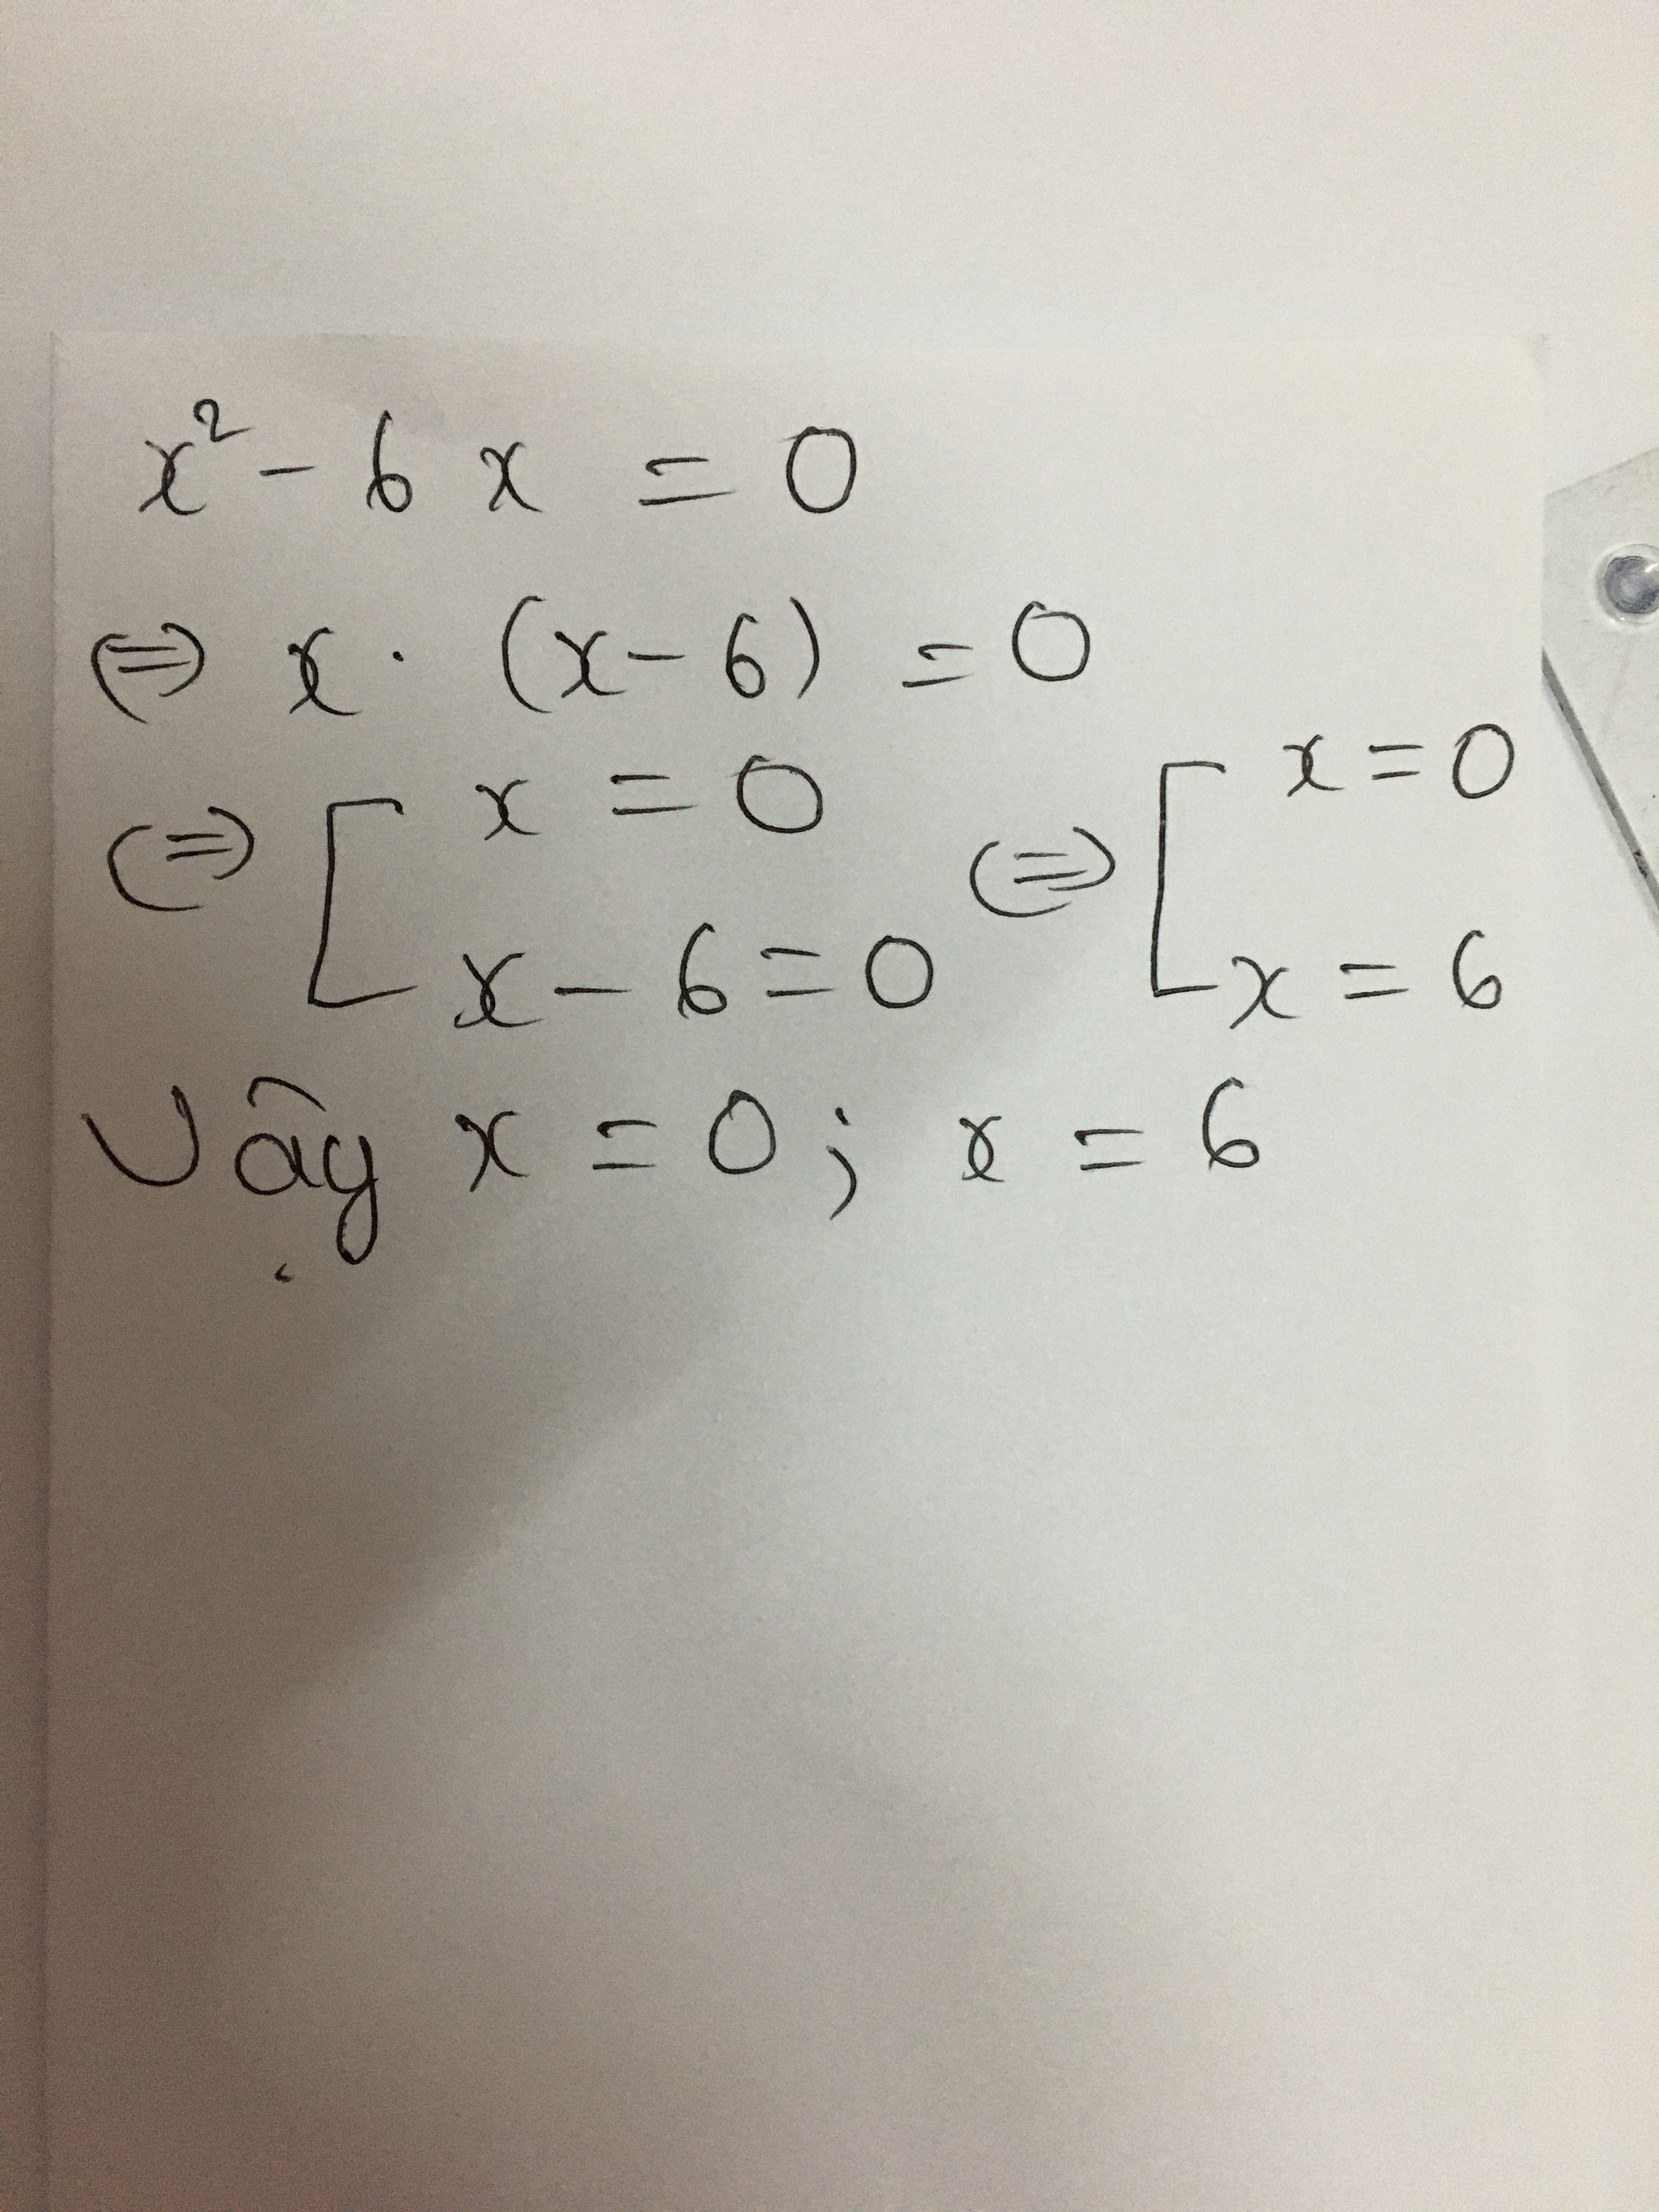 x² - 6x = 0
⇔ x . (x - 6) = 0
⇔ [ x = 0 ⇔ [ x = 0
x - 6 = 0 x = 6
Vậy x = 0; x = 6